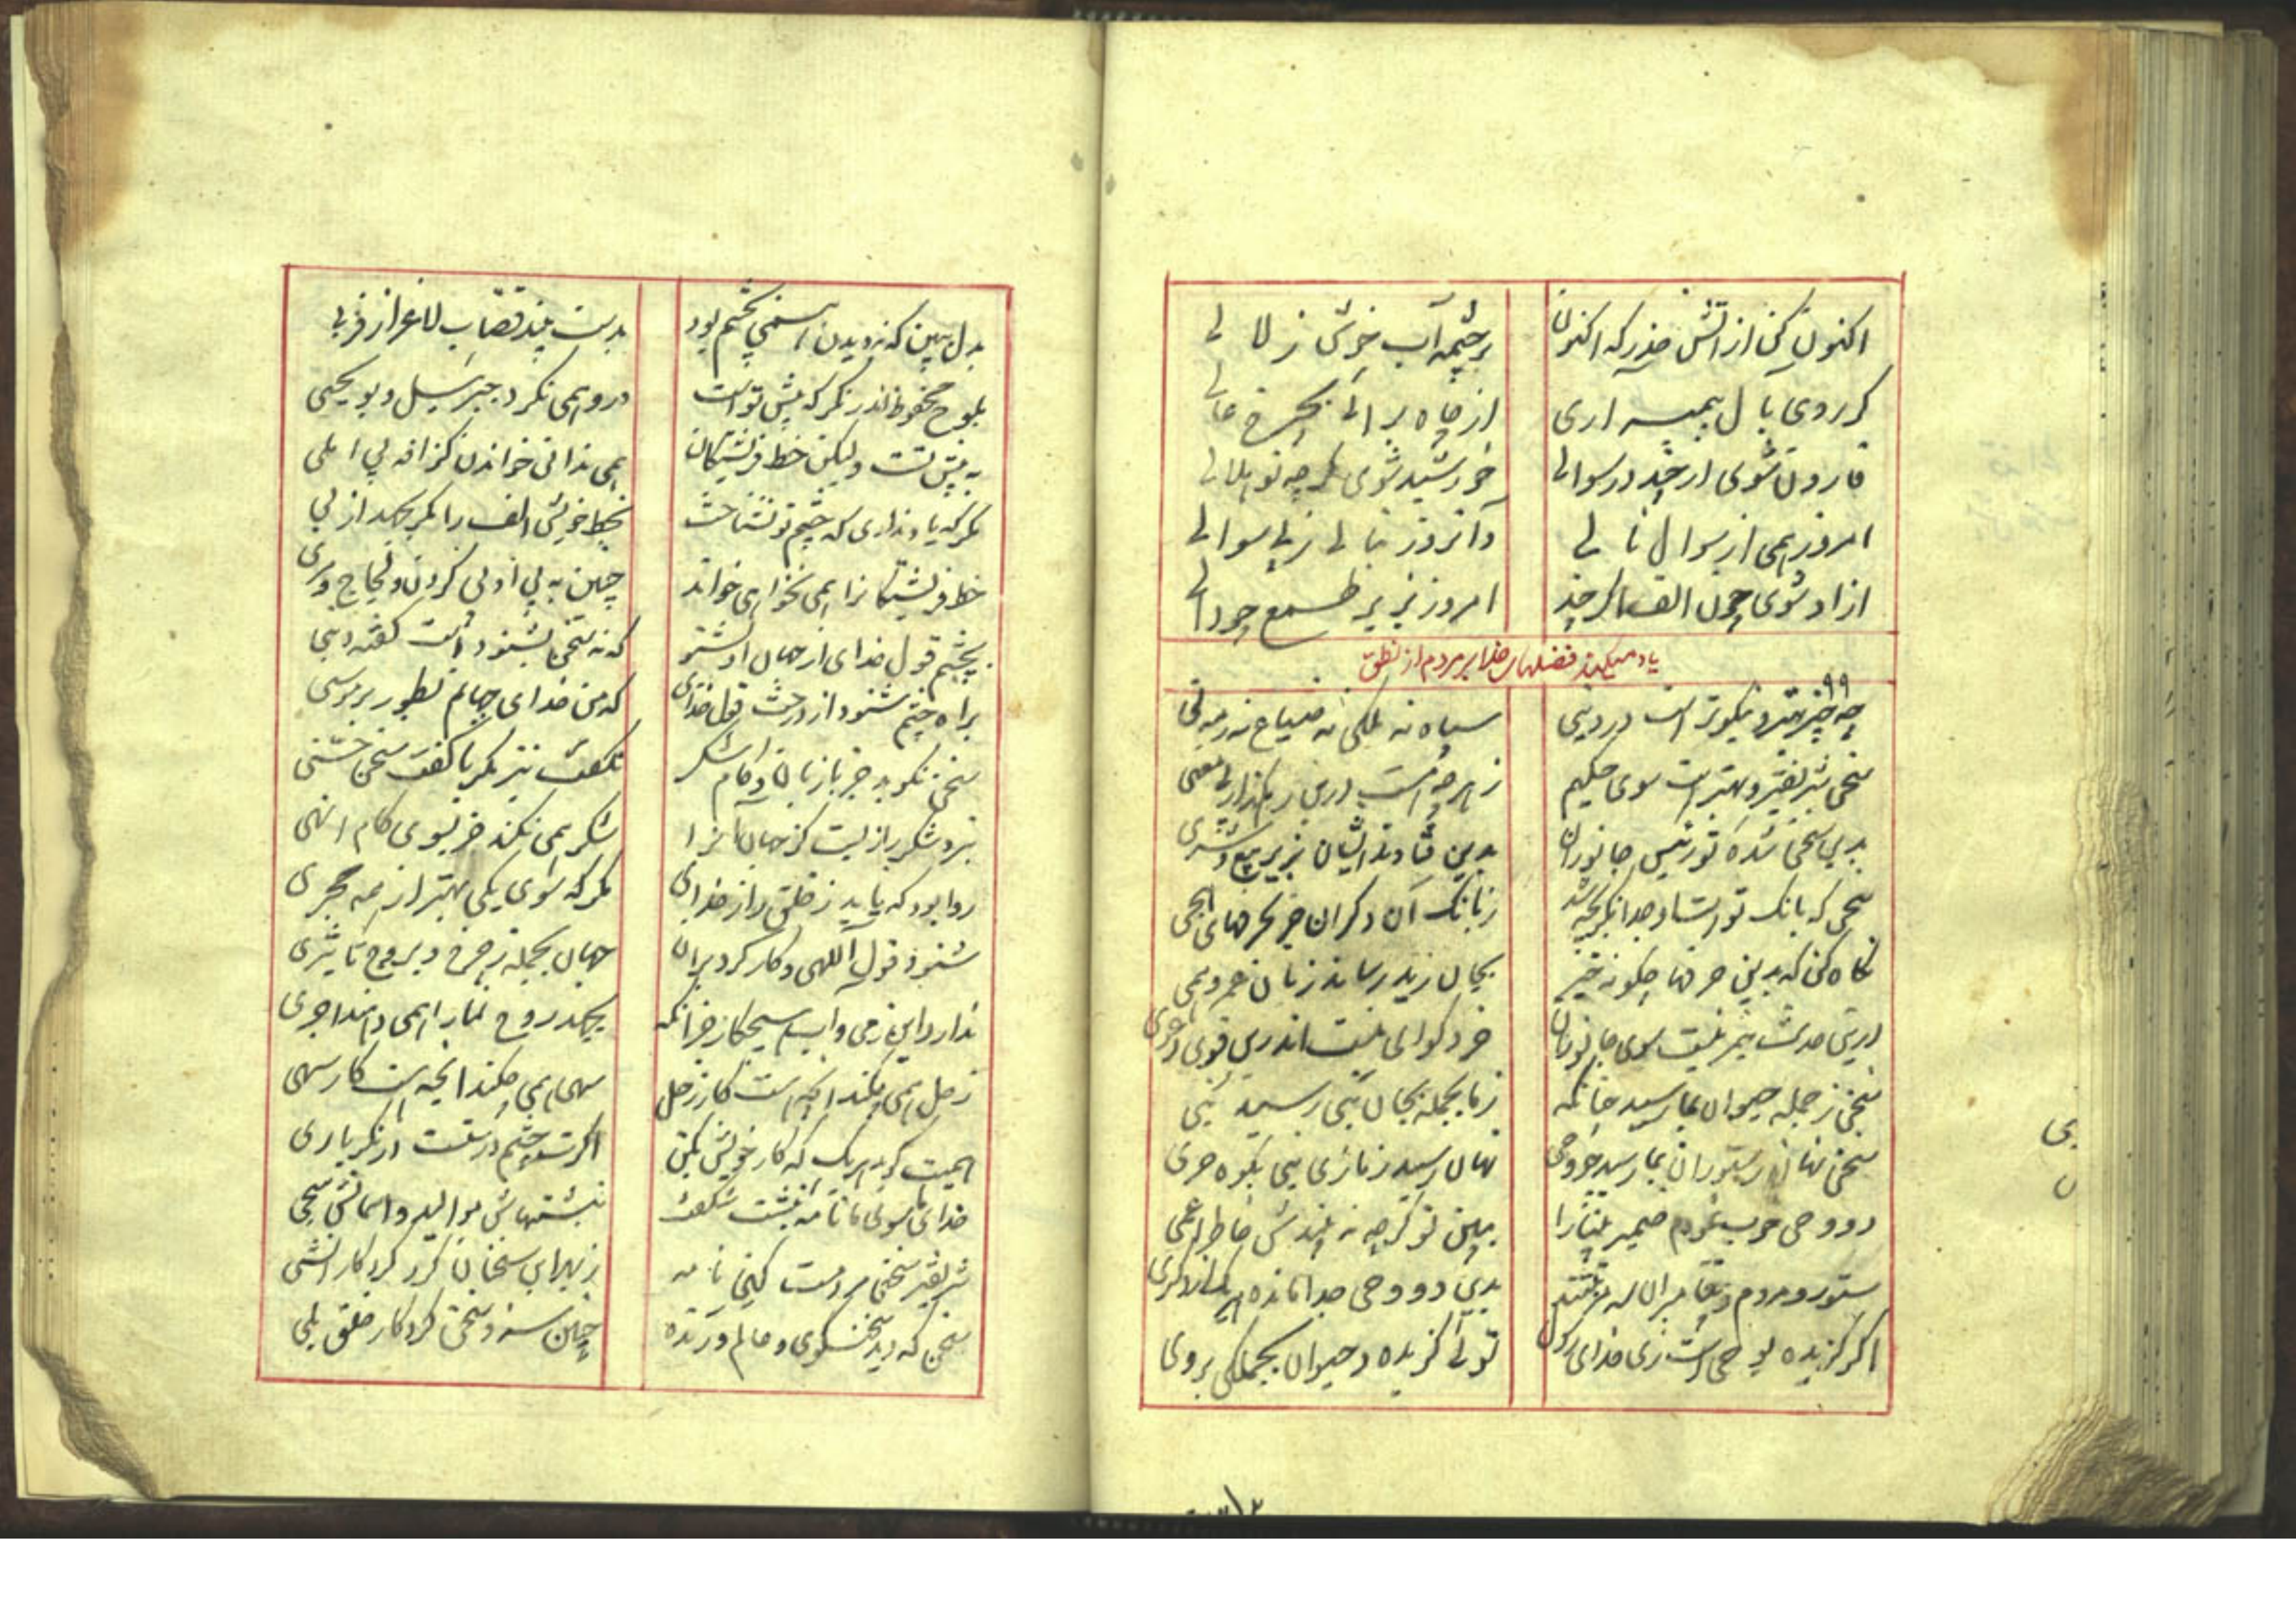 اکنون کن از آتش حذر که اکنون
بر چشمه آب خوش زلالی
گر روی بآل پیمبر آری
از چاه برآئی بچرخ عالی
قارون شوی ار چند در سوالی
خورشید شوی گرچه تو هلالی
امروز همی از سوال نالی
وآنروز بنالی ز بی سوالی
ازاد شوی چون الف اگر چند
امروز بزیر طمع چو دالی
یاد میکند فضلهای خدا بر مردم از نطق
۹۹
چه چیز بهتر و نیکوتر است در دنیی
سپاه نه ملکی نه ضیاع نه رمه نی
سخن شریفتر و بهتر است سوی حکیم
ز هر چه هست درین رهگذار بی معنی
بدین سخن شده تو رئیس جانوران
بدین فتادند ایشان بزیر بیع و شری
سخن که بانگ تو است او جدا نگر بچه شد
ز بانگ آن دگران جز بحرفهای هجی
نگاه کن که بدین حرفها چگونه خبر
بجان زید رساند زبان عمرو همی
درین حدیث هنر نیست سوی جانوران
خرد گوای منست اندرین قوی دعوی
سخن ز جمله حیوان بما رسید چنانکه
ز ما بجمله بجان نبی رسید نبی
سخن نهان ز ستوران بما رسید چو وحی
نهان رسید ز ما زی نبی بکوه حری
دو وحی خوب نمودم ضمیر بینا را
ببین تو گرچه نه بیندش خاطر اعمی
ستور و مردم و پیغمبران
بدین دو وحی جدا مانده هر یک از دگری
اگر گزیده بوحی است زی خدای رسول
توئی گزیده و حیوان بجملگی بروی
بدل ببین که نه دیدن همی بچشم بود
بدست بیند قصاب لاغر از فربی
بلوح محفوظ اندر نگر که پیش تو است
درو همی نگرد جبرئیل و بویحیی
به پیش تست ولیکن خط فرشتگان
همی ندانی خواندن گزافه بی املی
مگر که یاد نداری که چشم تو نشناخت
بخط خویش الف را مگر بجهد از بی
خط فرشتگانرا همی نخواهی خواند
چنین به بی ادبی کردن و لجاج و مری
بچشم قول خدای از جهان او بشنو
که نه سخن بشنود است گفته دنیی
براه چشم شنود از درخت قول خدای
که من خدای جهانم بطور بر موسی
سخن نگوید جز با زبان و کام شکر
نگفت نیز مگر با کفت سخن خشنی
نزد شکر رازیست کز جهان آنرا
شکر همی نکند جز بسوی کام انهی
روا بود که بیابد ز خلق راز خدای
مگر که سوی یکی بهتر از همه مجری
شنود قول الهی و کار کرد بران
جهان بجمله ز چرخ و بروج تا بثری
ندارد این زمی و آب هیچ کار جز آنکه
بجهد روح نما را همی دهند اجری
زحل همی چکند انچه است کار زحل
سهی همی چکند انچه است کار سهی
همیت گوید هر یک که کار خویش بکن
اگرت چشم درست است در نگر باری
خدای ما سوی ما نامه نبشت شگفت
نبشتهاش موالید و آسمانش سحی
شریفتر سخنی مردمست کاین نامه
ز بهر این سخنان کرد کردگار انشی
سخن که دید سخنگوی و عالم و زنده
چنین سزد سخن کردگار خلق بلی
بی
ن